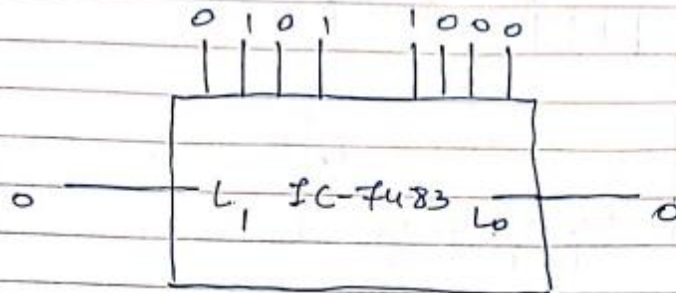 0 1 0 1 1 0 0 0
0 L1 IC-7483 L0 0